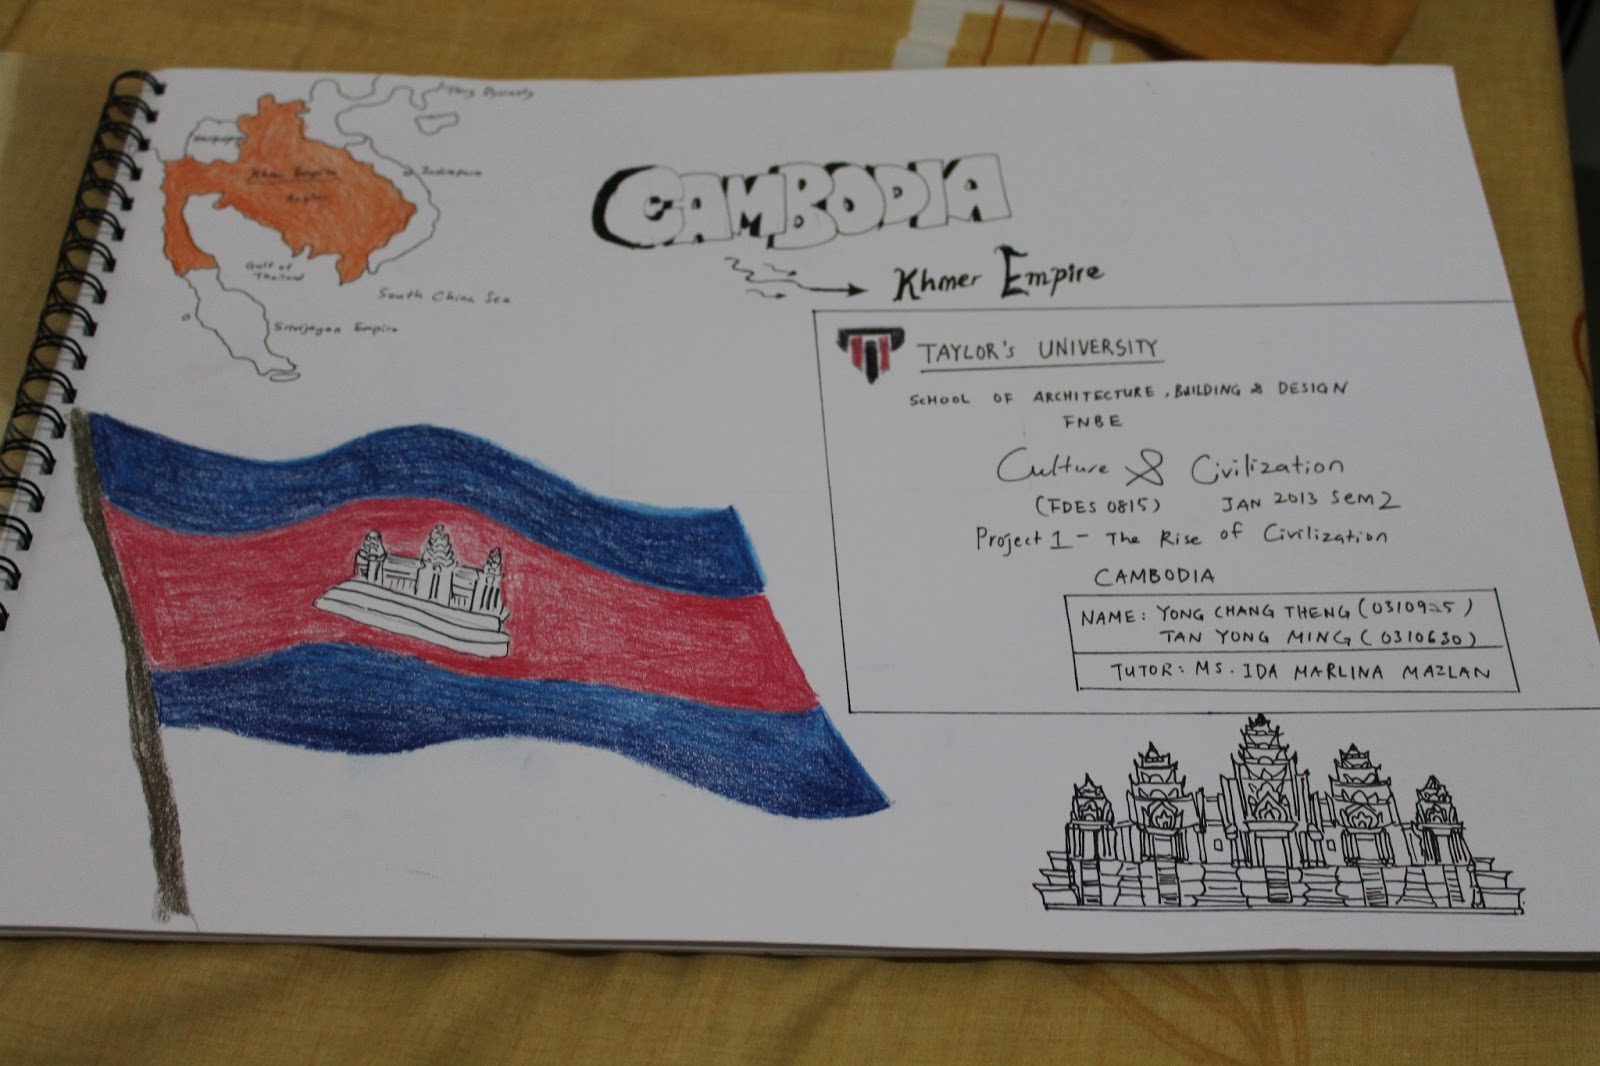 Tang Dynasty
Khmer Empire
Angkor
Indrapura
Gulf of
Thailand
South China Sea
Srivijayan Empire
CAMBODIA
Khmer Empire
TAYLOR'S UNIVERSITY
SCHOOL OF ARCHITECTURE, BUILDING & DESIGN
FNBE
Culture & Civilization
(FDES 0815) JAN 2013 Sem 2
Project 1 - The Rise of Civilization
CAMBODIA
NAME: YONG CHANG THENG (0310925)
TAN YONG MING (0310630)
TUTOR: MS. IDA MARLINA MAZLAN